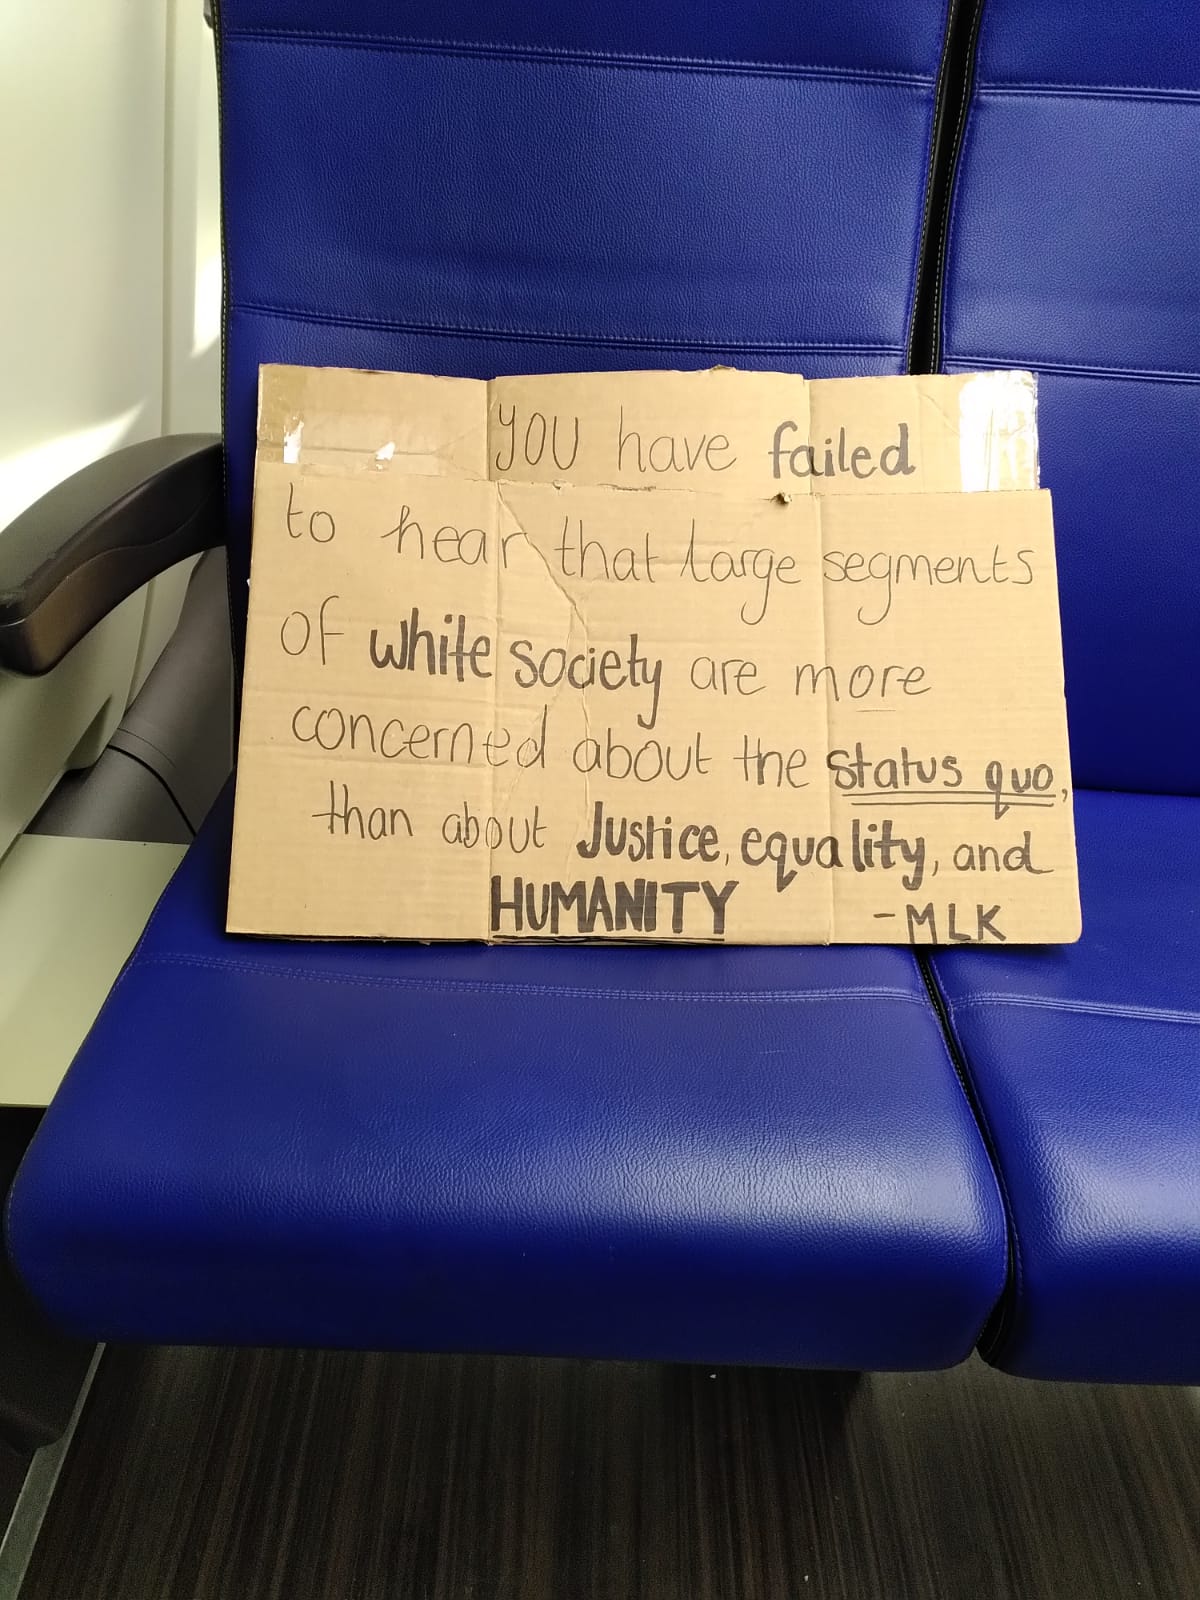 YOU have failed
to hear that large segments
of white society are more
concerned about the status quo,
than about Justice, equality, and
HUMANITY - MLK